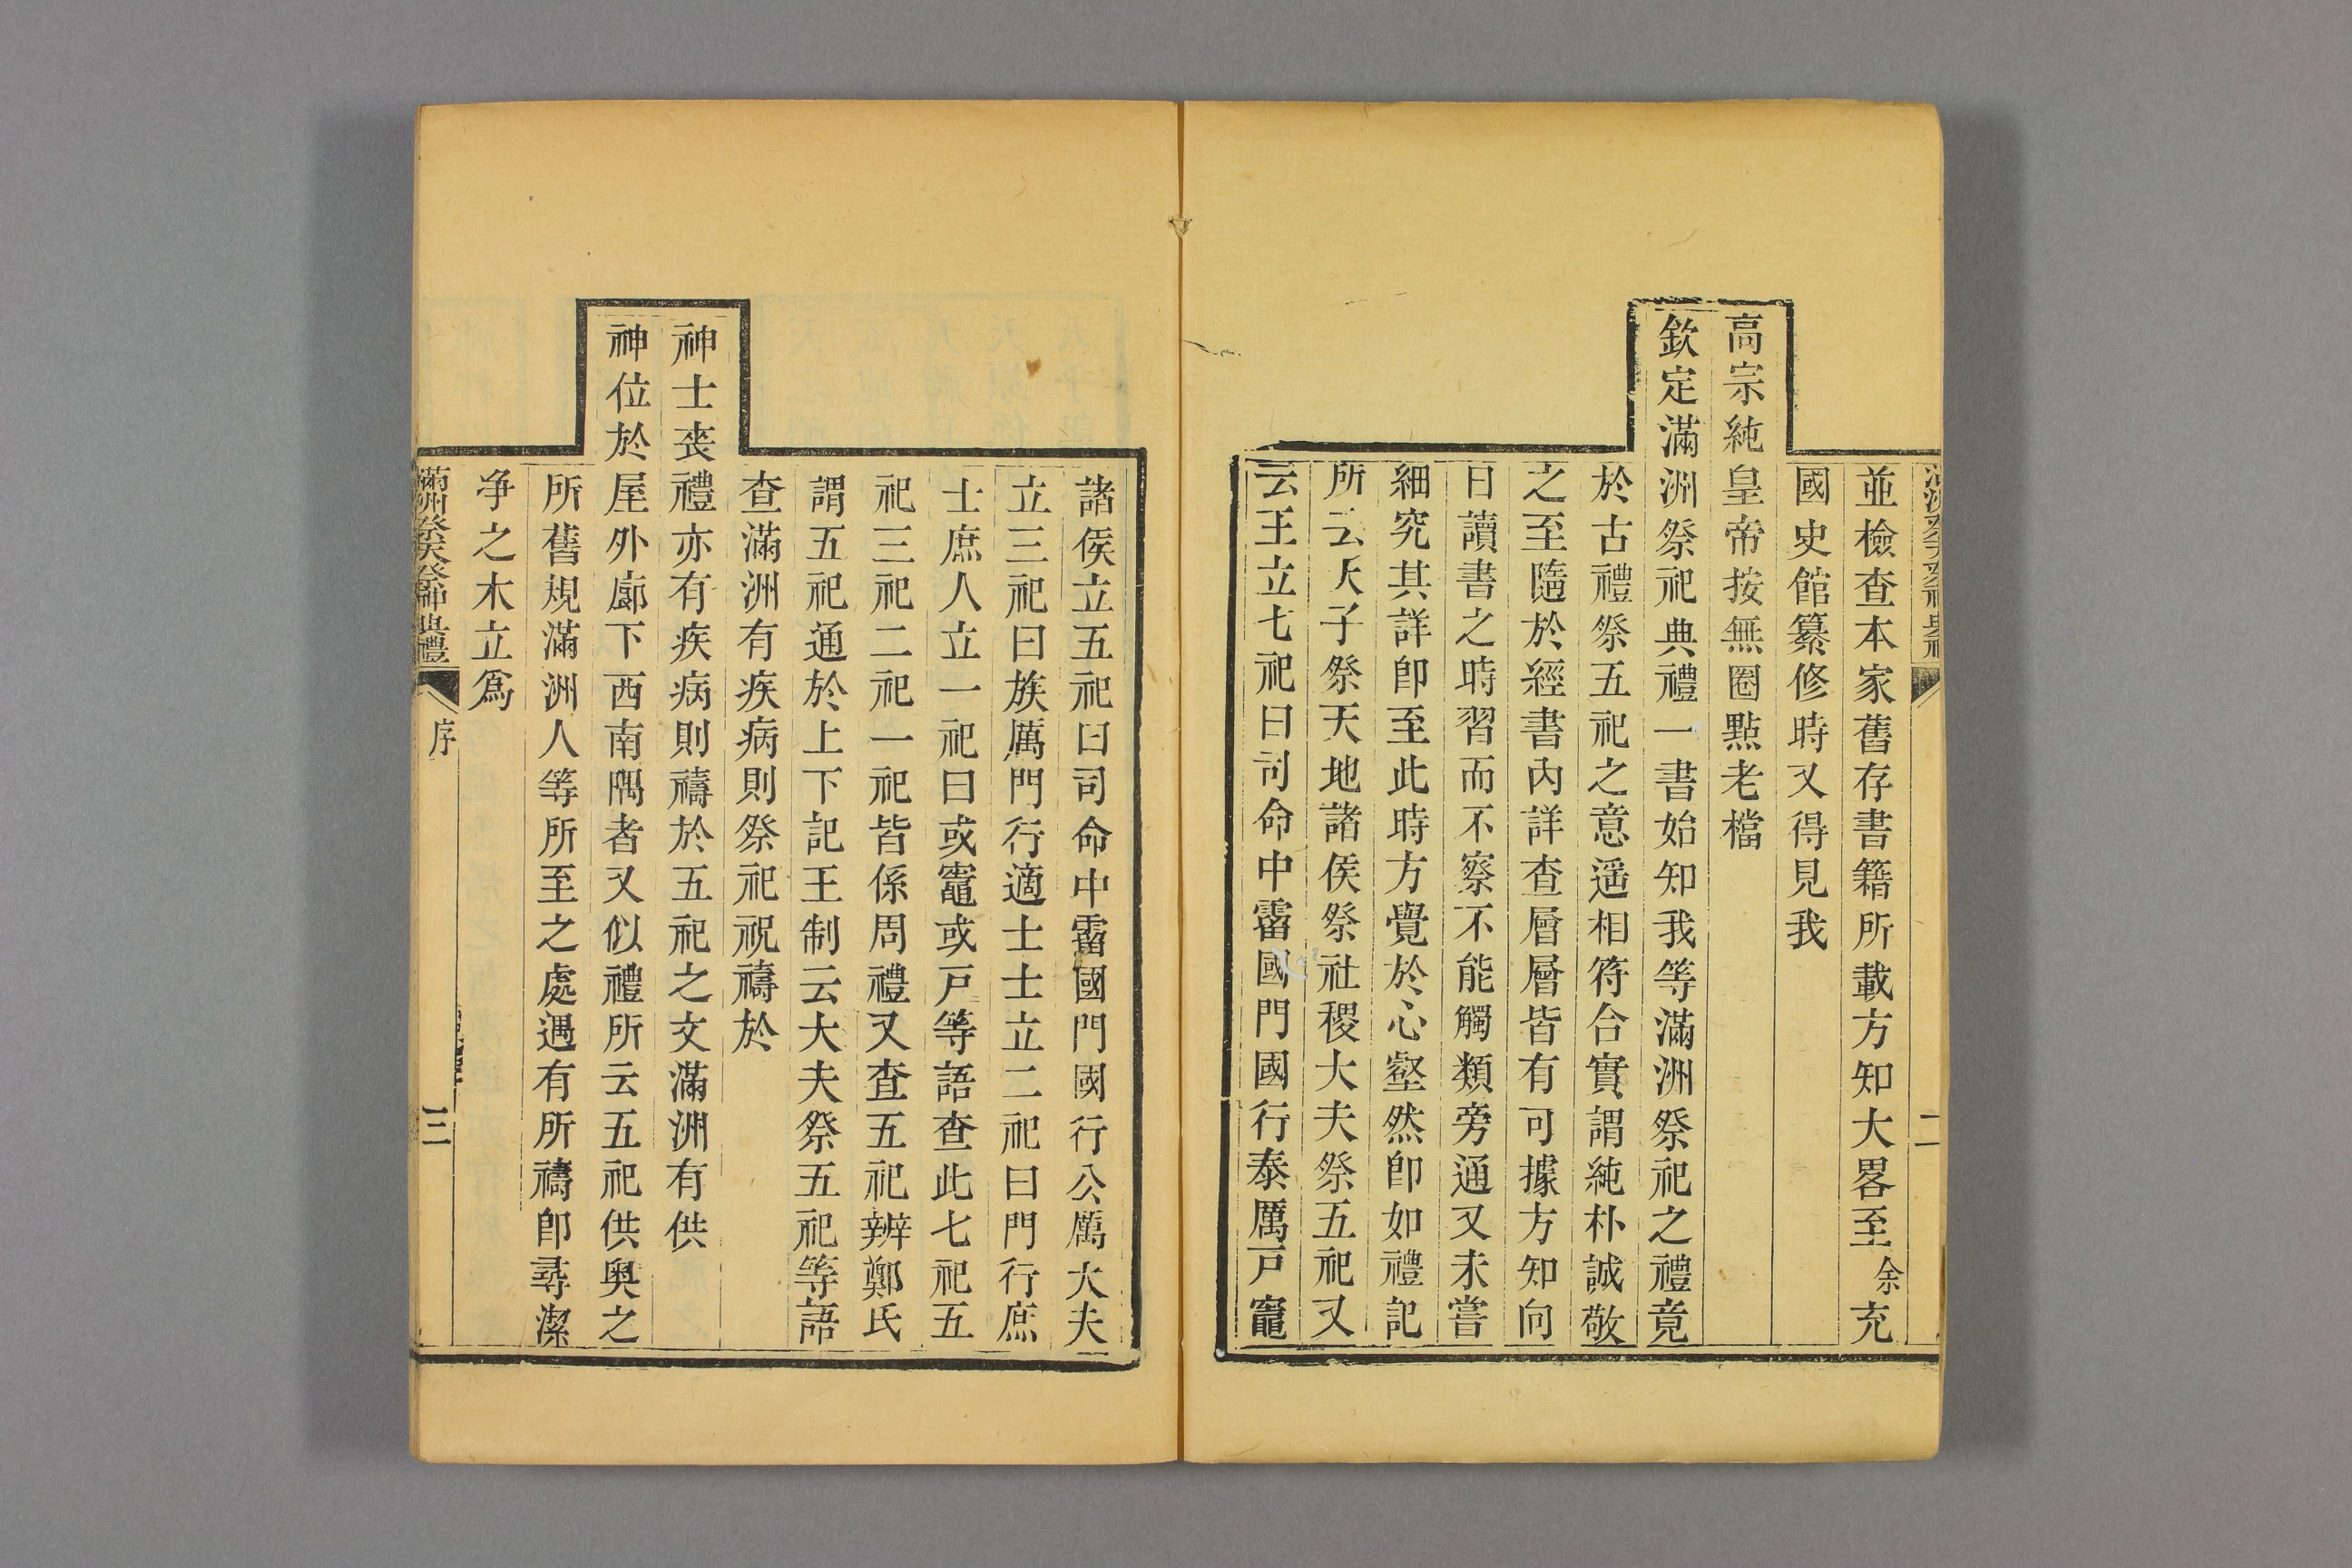 並檢查本家舊存書籍所載方知大畧至余充
國史館纂修時又得見我
高宗純皇帝按無圈點老檔
欽定滿洲祭祀典禮一書始知我等滿洲祭祀之禮竟
於古禮祭五祀之意遥相符合實謂純朴誠敬
之至隨於經書內詳查層層皆有可據方知向
日讀書之時習而不察不能觸類旁通又未嘗
細究其詳卽至此時方覺於心壑然卽如禮記
所云天子祭天地諸侯祭社稷大夫祭五祀又
云王立七祀曰司命中霤國門國行泰厲戶竈
二
諸侯立五祀曰司命中霤國門國行公厲大夫
立三祀曰族厲門行適士士立二祀曰門行庶
士庶人立一祀曰或竈或戶等語查此七祀五
祀三祀二祀一祀皆係周禮又查五祀辨鄭氏
謂五祀通於上下記王制云大夫祭五祀等語
查滿洲有疾病則祭祀祝禱於
神士喪禮亦有疾病則禱於五祀之文滿洲有供
神位於屋外廊下西南隅者又似禮所云五祀供奧之
所舊規滿洲人等所至之處遇有所禱卽尋潔
净之木立爲
滿洲祭天祭神典禮
序
三